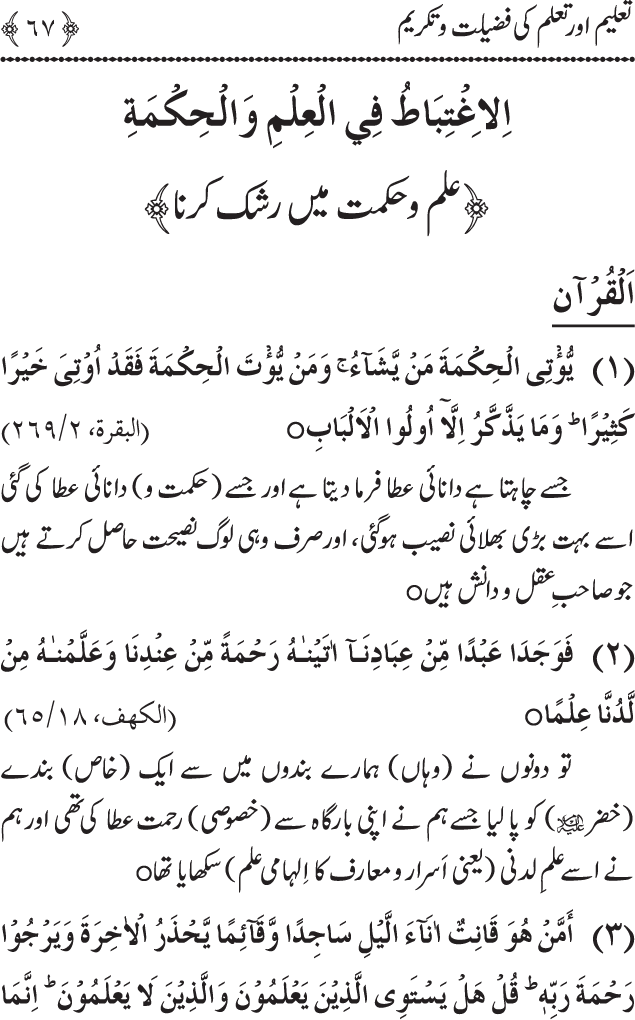 تعلیم اور تعلم کی فضیلت و تکریم ﴿ ۶۷ ﴾
اَلاِغْتِبَاطُ فِي الْعِلْمِ وَالْحِكْمَةِ
﴿علم و حکمت میں رشک کرنا﴾
اَلْقُرْآن
(۱) يُّؤْتِی الْحِكْمَةَ مَنْ يَّشَآءُ ۚ وَمَنْ يُّؤْتَ الْحِكْمَةَ فَقَدْ اُوْتِیَ خَيْرًا
كَثِيْرًا ؕ وَمَا يَذَّكَّرُ اِلَّآ اُولُوا الْاَلْبَابِo (البقرة، ۲/۲۶۹)
جسے چاہتا ہے دانائی عطا فرما دیتا ہے اور جسے (حکمت و) دانائی عطا کی گئی
اسے بہت بڑی بھلائی نصیب ہوگئی، اور صرف وہی لوگ نصیحت حاصل کرتے ہیں
جو صاحبِ عقل و دانش ہیںo
(۲) فَوَجَدَا عَبْدًا مِّنْ عِبَادِنَآ اٰتَيْنٰهُ رَحْمَةً مِّنْ عِنْدِنَا وَعَلَّمْنٰهُ مِنْ
لَّدُنَّا عِلْمًاo (الکهف، ۱۸/۶۵)
تو دونوں نے (وہاں) ہمارے بندوں میں سے ایک (خاص) بندے
(خضر علیہ السلام) کو پا لیا جسے ہم نے اپنی بارگاہ سے (خصوصی) رحمت عطا کی تھی اور ہم
نے اسے علمِ لدنی (یعنی اَسرار و معارف کا اِلہامی علم) سکھایا تھاo
(۳) اَمَّنْ هُوَ قَانِتٌ اٰنَآءَ الَّيْلِ سَاجِدًا وَّقَآئِمًا يَّحْذَرُ الْاٰخِرَةَ وَيَرْجُوْا
رَحْمَةَ رَبِّهٖ ؕ قُلْ هَلْ يَسْتَوِی الَّذِيْنَ يَعْلَمُوْنَ وَالَّذِيْنَ لَا يَعْلَمُوْنَ ؕ اِنَّمَا